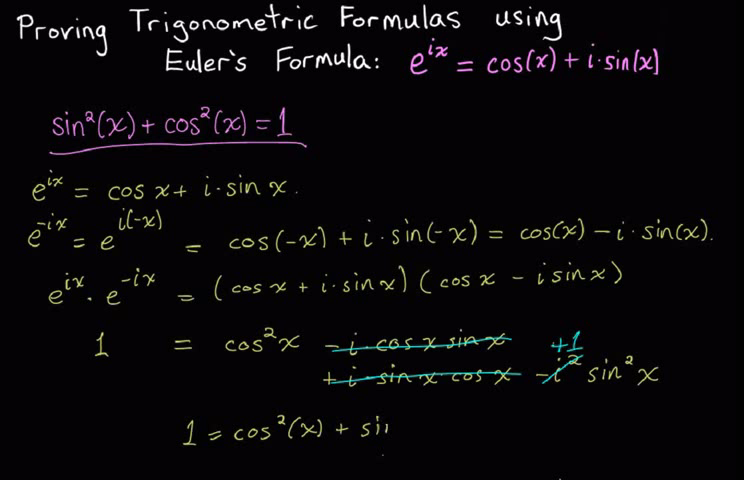 Proving Trigonometric Formulas using
Euler's Formula: e^{ix} = cos(x) + i·sin(x)
sin²(x) + cos²(x) = 1
e^{ix} = cos x + i·sin x.
e^{-ix} = e^{i(-x)} = cos(-x) + i·sin(-x) = cos(x) - i·sin(x).
e^{ix}·e^{-ix} = (cos x + i·sin x)(cos x - i sin x)
1 = cos²x - i·cos x sin x +1
+ i·sin x·cos x - i² sin²x
1 = cos²(x) + sin